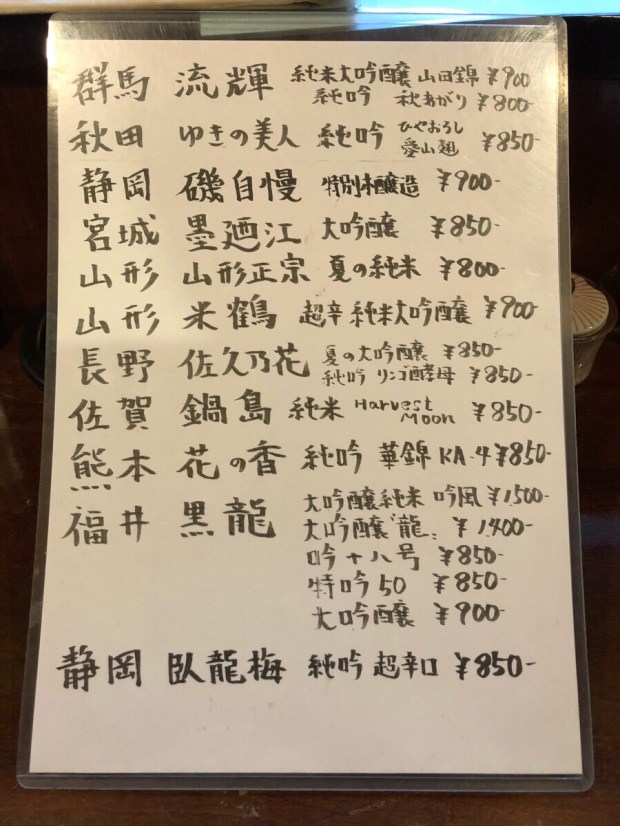 群馬 流輝 純米大吟醸 山田錦 ¥900
純吟 秋あがり ¥800-
秋田 ゆきの美人 純吟 ひやおろし 愛山麹 ¥850-
静岡 磯自慢 特別本醸造 ¥900-
宮城 墨廼江 大吟醸 ¥850-
山形 山形正宗 夏の純米 ¥800-
山形 米鶴 超辛 純米大吟醸 ¥900-
長野 佐久乃花 夏の大吟醸 ¥850-
純吟 リンゴ酵母 ¥850-
佐賀 鍋島 純米 Harvest Moon ¥850-
熊本 花の香 純吟 華錦 KA-4 ¥850-
福井 黒龍 大吟醸純米 吟風 ¥1,500-
大吟醸 "龍" ¥1,400-
吟十八号 ¥850-
特吟50 ¥850-
大吟醸 ¥900-
静岡 臥龍梅 純吟 超辛口 ¥850-